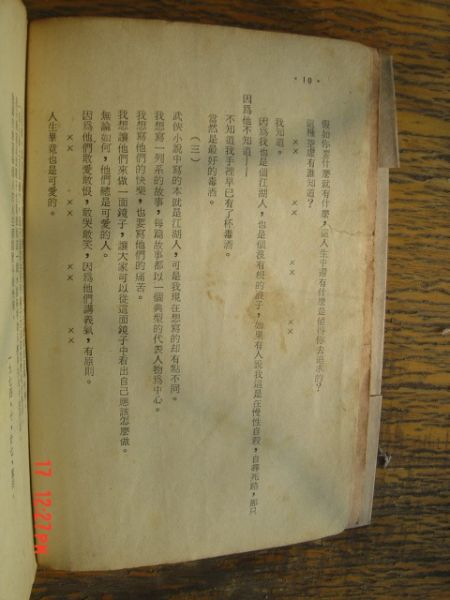 · 10 ·
假如你要什麼就有什麼，那人生中還有什麼是值得你去追求的？
這種悲哀有誰知道？
×× ×× ×× ××
我知道。
因爲我也是個江湖人，也是個沒有根的浪子，如果有人說我這是在慢性自殺，自尋死路，那只
因爲他不知道——
不知道我手裡早已有了杯毒酒。
當然是最好的毒酒。
（三）
武俠小說中寫的本就是江湖人，可是我現在想寫的却有點不同。
我想寫一系列的故事，每篇故事都以一個典型的代表人物爲中心。
我想寫他們的快樂，也要寫他們的痛苦。
我想讓他們來做一面鏡子，讓大家可以從這面鏡子中看出自己應該怎麼做。
無論如何，他們總是可愛的人。
因爲他們敢愛敢恨，敢哭敢笑，因爲他們講義氣，有原則。
×× ×× ×× ××
人生畢竟也是可愛的。
17 12:27PM